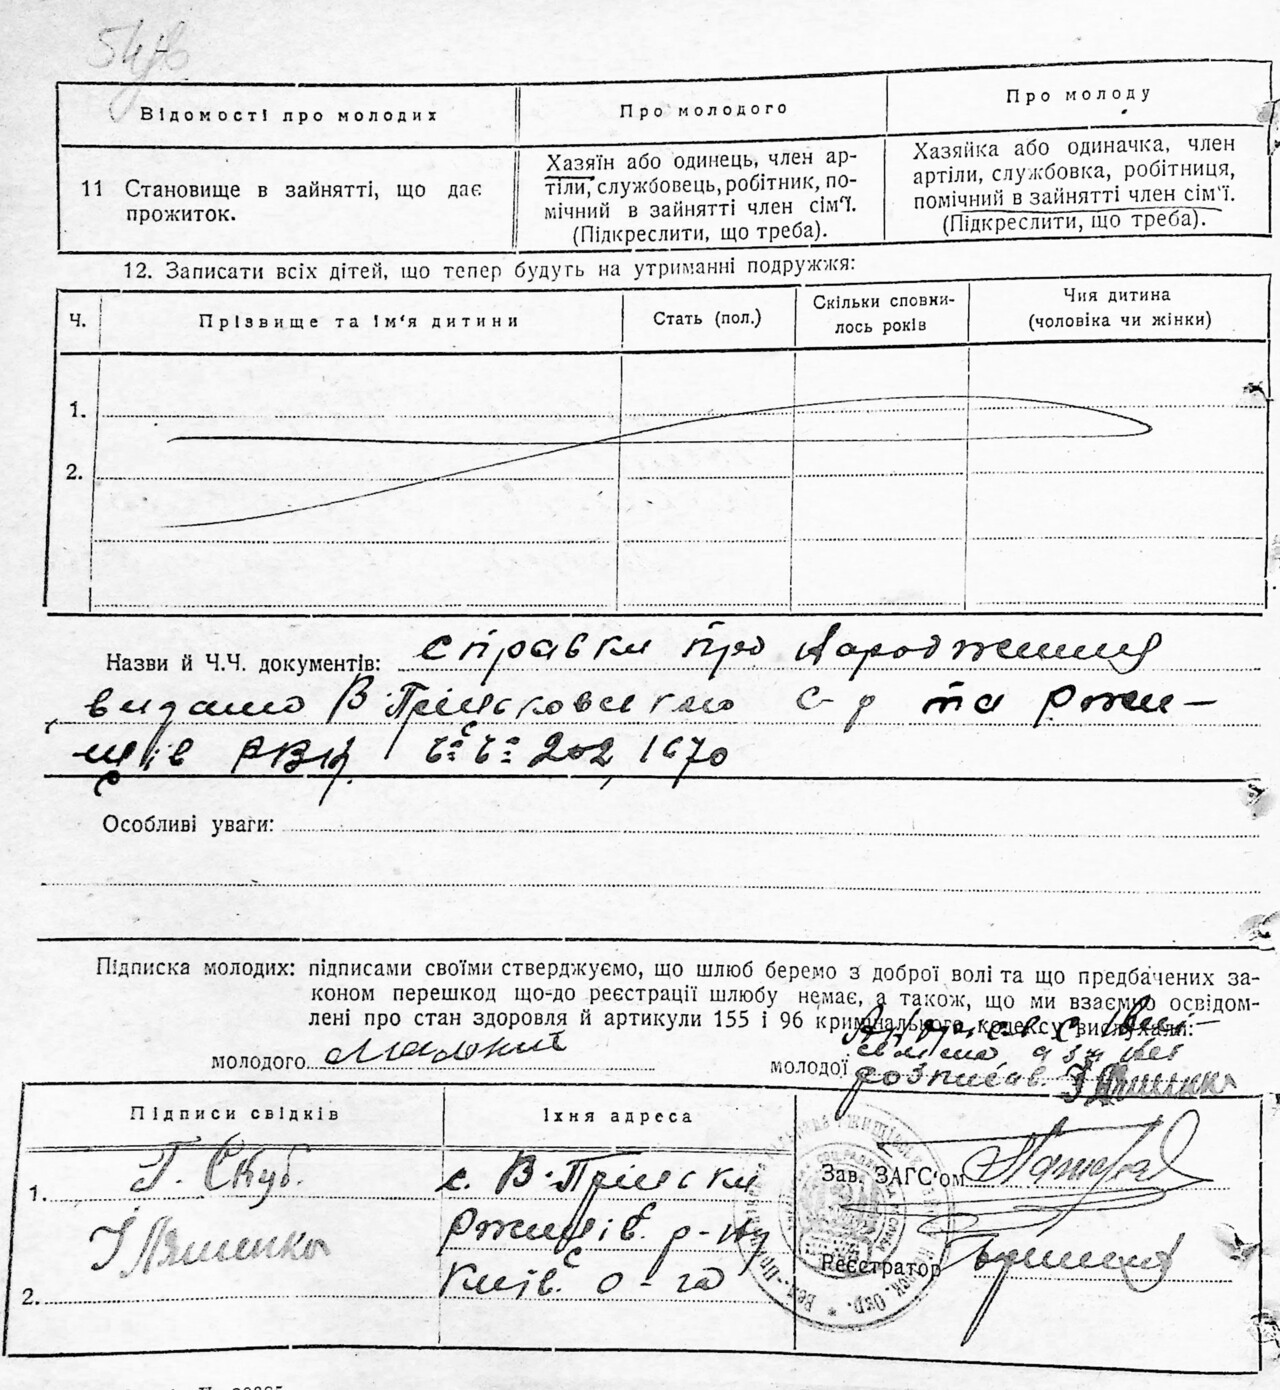 Відомості про молодих
Про молодого
Про молоду
11 Становище в зайнятті, що дає
прожиток.
Хазяїн або одинець, член ар-
тіли, службовець, робітник, по-
мічний в зайнятті член сім'ї.
(Підкреслити, що треба).
Хазяйка або одиначка, член
артіли, службовка, робітниця,
помічний в зайнятті член сім'ї.
(Підкреслити, що треба).
12. Записати всіх дітей, що тепер будуть на утриманні подружжя:
Ч.
Прізвище та ім'я дитини
Стать (пол.)
Скільки сповни-
лось років
Чия дитина
(чоловіка чи жінки)
1.
2.
Назви й Ч.Ч. документів: справки про народження
видано В-Пріцьковською с-р та Ржи-
щів РВК Ч Ч 202, 1670
Особливі уваги:
Підписка молодих: підписами своїми стверджуємо, що шлюб беремо з доброї волі та що предбачених за-
коном перешкод що-до реєстрації шлюбу немає, а також, що ми взаємно освідом-
лені про стан здоровля й артикули 155 і 96 кримінального кодексу вислухали:
молодого
молодої
розписав. І Ляшенко
Підписи свідків
Їхня адреса
1. Г. Скуб.
І Ляшенко
2.
с. В-Пріцьки
Ржищів. р-ну
Київ. о-га
Зав. ЗАГС'ом
Реєстратор